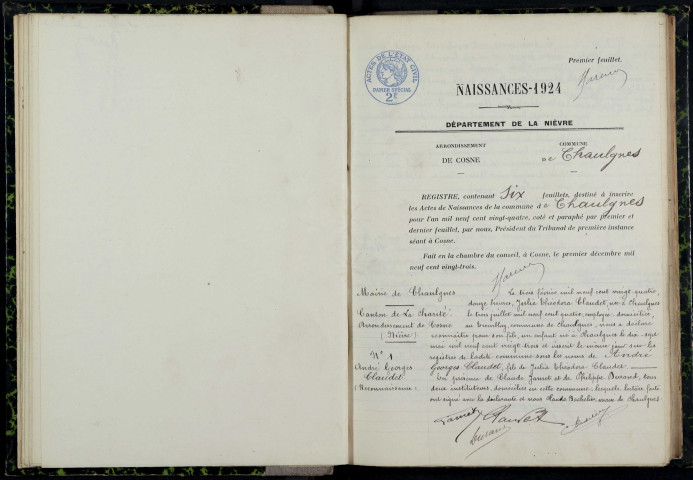 Premier feuillet.
ACTES DE L'ÉTAT CIVIL
PAPIER SPÉCIAL
2F
NAISSANCES-1924
DÉPARTEMENT DE LA NIÈVRE
ARRONDISSEMENT
DE COSNE
COMMUNE
de Chaulgnes
REGISTRE, contenant Six feuillets, destiné à inscrire
les Actes de Naissances de la commune de Chaulgnes
pour l'an mil neuf cent vingt-quatre, coté et paraphé par premier et
dernier feuillet, par nous, Président du Tribunal de première instance
séant à Cosne.
Fait en la chambre du conseil, à Cosne, le premier décembre mil
neuf cent vingt-trois.
Mairie de Chaulgnes
Canton de La Charité
Arrondissement de Cosne
(Nièvre)
N° 1
André Georges
Claudet
(Reconnaissance)
Le trois février mil neuf cent vingt quatre,
heures, Julia Théodora Claudet, née à Chaulgnes
le trois juillet mil neuf cent quatre, employée, domiciliée
au Tremblay, commune de Chaulgnes, nous a déclaré
reconnaître pour son fils, un enfant né à Chaulgnes le dix-sept
mai mil neuf cent vingt trois et inscrit le même jour sur les
registres de ladite commune sous les noms de André
Georges Claudet, fils de Julia Théodora Claudet
En présence de Claude Jamet et de Philippe, tous
deux instituteurs, domiciliés en cette commune, lesquels, lecture faite
ont signé avec la déclarante et nous Claude Bachelier maire de Chaulgnes
Jamet Claudet